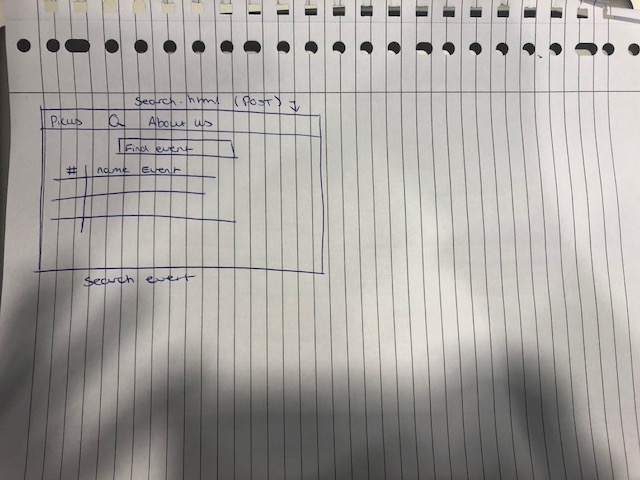 search.html (POST) ↓
Picus Q About us
Find event
# name Event
Search event